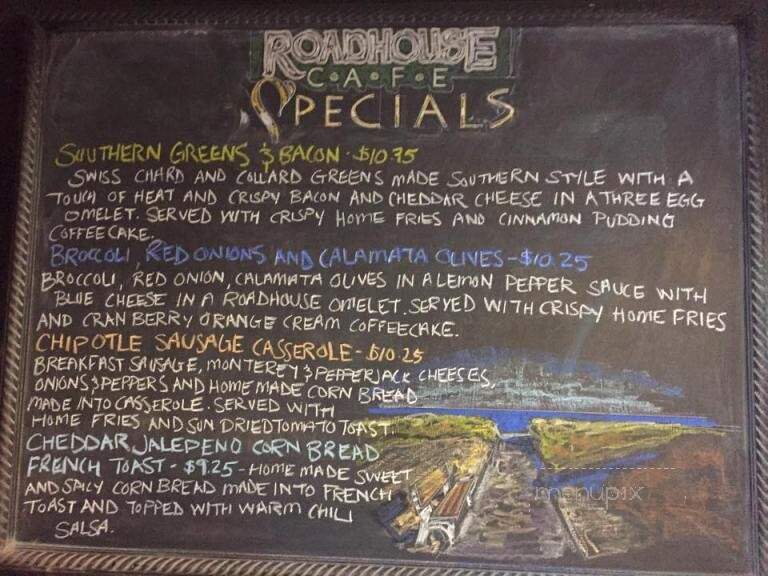 ROADHOUSE
CAFE
SPECIALS
SOUTHERN GREENS & BACON - $10.75
SWISS CHARD AND COLLARD GREENS MADE SOUTHERN STYLE WITH A
TOUCH OF HEAT AND CRISPY BACON AND CHEDDAR CHEESE IN A THREE EGG
OMELET. SERVED WITH CRISPY HOME FRIES AND CINNAMON PUDDING
COFFEECAKE.
BROCCOLI, RED ONIONS AND CALAMATA OLIVES - $10.25
BROCCOLI, RED ONION, CALAMATA OLIVES IN A LEMON PEPPER SAUCE WITH
BLUE CHEESE IN A ROADHOUSE OMELET. SERVED WITH CRISPY HOME FRIES
AND CRANBERRY ORANGE CREAM COFFEECAKE.
CHIPOTLE SAUSAGE CASSEROLE - $10.25
BREAKFAST SAUSAGE, MONTEREY & PEPPERJACK CHEESES,
ONIONS & PEPPERS AND HOMEMADE CORN BREAD
MADE INTO CASSEROLE. SERVED WITH
HOME FRIES AND SUN DRIED TOMATO TOAST.
CHEDDAR JALEPENO CORN BREAD
FRENCH TOAST - $9.25 - HOME MADE SWEET
AND SPICY CORN BREAD MADE INTO FRENCH
TOAST AND TOPPED WITH WARM CHILI
SALSA.
menupix